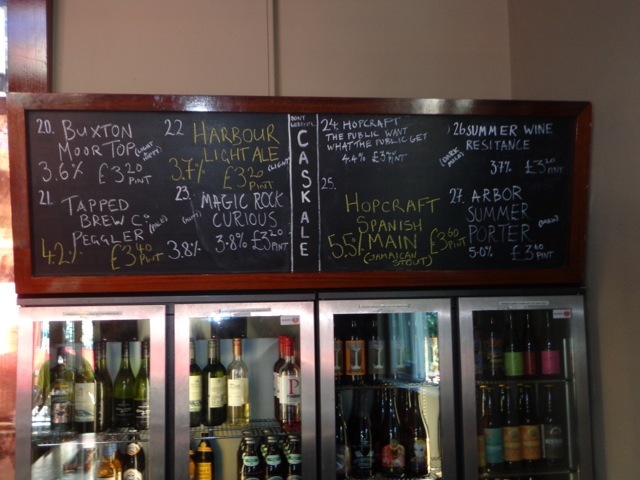 20. BUXTON
MOOR TOP
3.6% £3.20
PINT
21. TAPPED
BREW Co.
PEGGLER
4.2% £3.40
PINT
22 HARBOUR
LIGHT ALE
(LIGHT
3.7% £3.20
PINT
23. MAGIC ROCK
CURIOUS
3.8% 3.8% £3.20
PINT
CASK ALE
24. HOPCRAFT
THE PUBLIC WANT
WHAT THE PUBLIC GET
4.4% PINT
25. HOPCRAFT
SPANISH
MAIN
5.5% £3.60
PINT
(JAMAICAN
STOUT)
26 SUMMER WINE
RESITANCE
(DARK
MILD)
3.7% £3.20
PINT
27. ARBOR
SUMMER
PORTER
5.0% £3.40
PINT